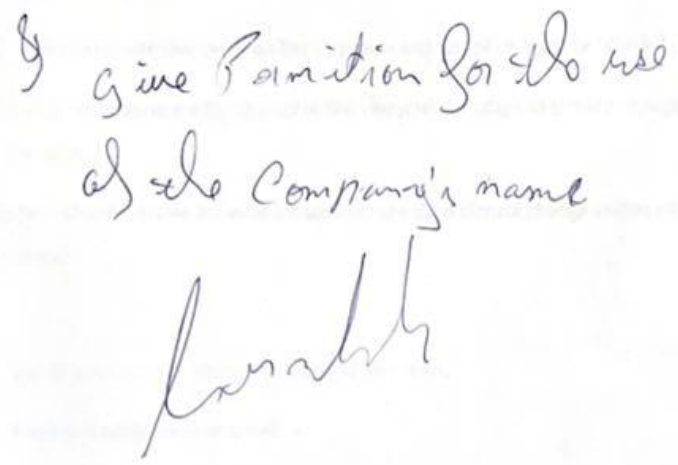 I give Permition for the use
of the Company's name